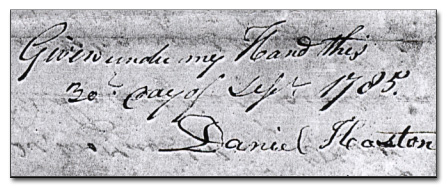 Given under my Hand this
30th day of Sepr 1785.
Daniel Haston